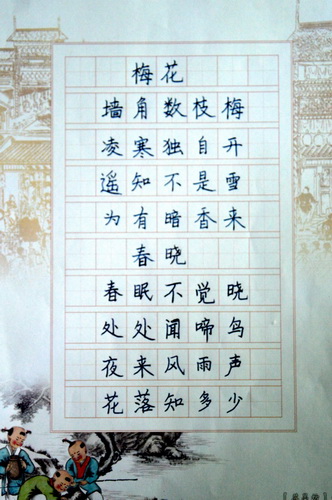 梅花
墙角数枝梅
凌寒独自开
遥知不是雪
为有暗香来
春晓
春眠不觉晓
处处闻啼鸟
夜来风雨声
花落知多少